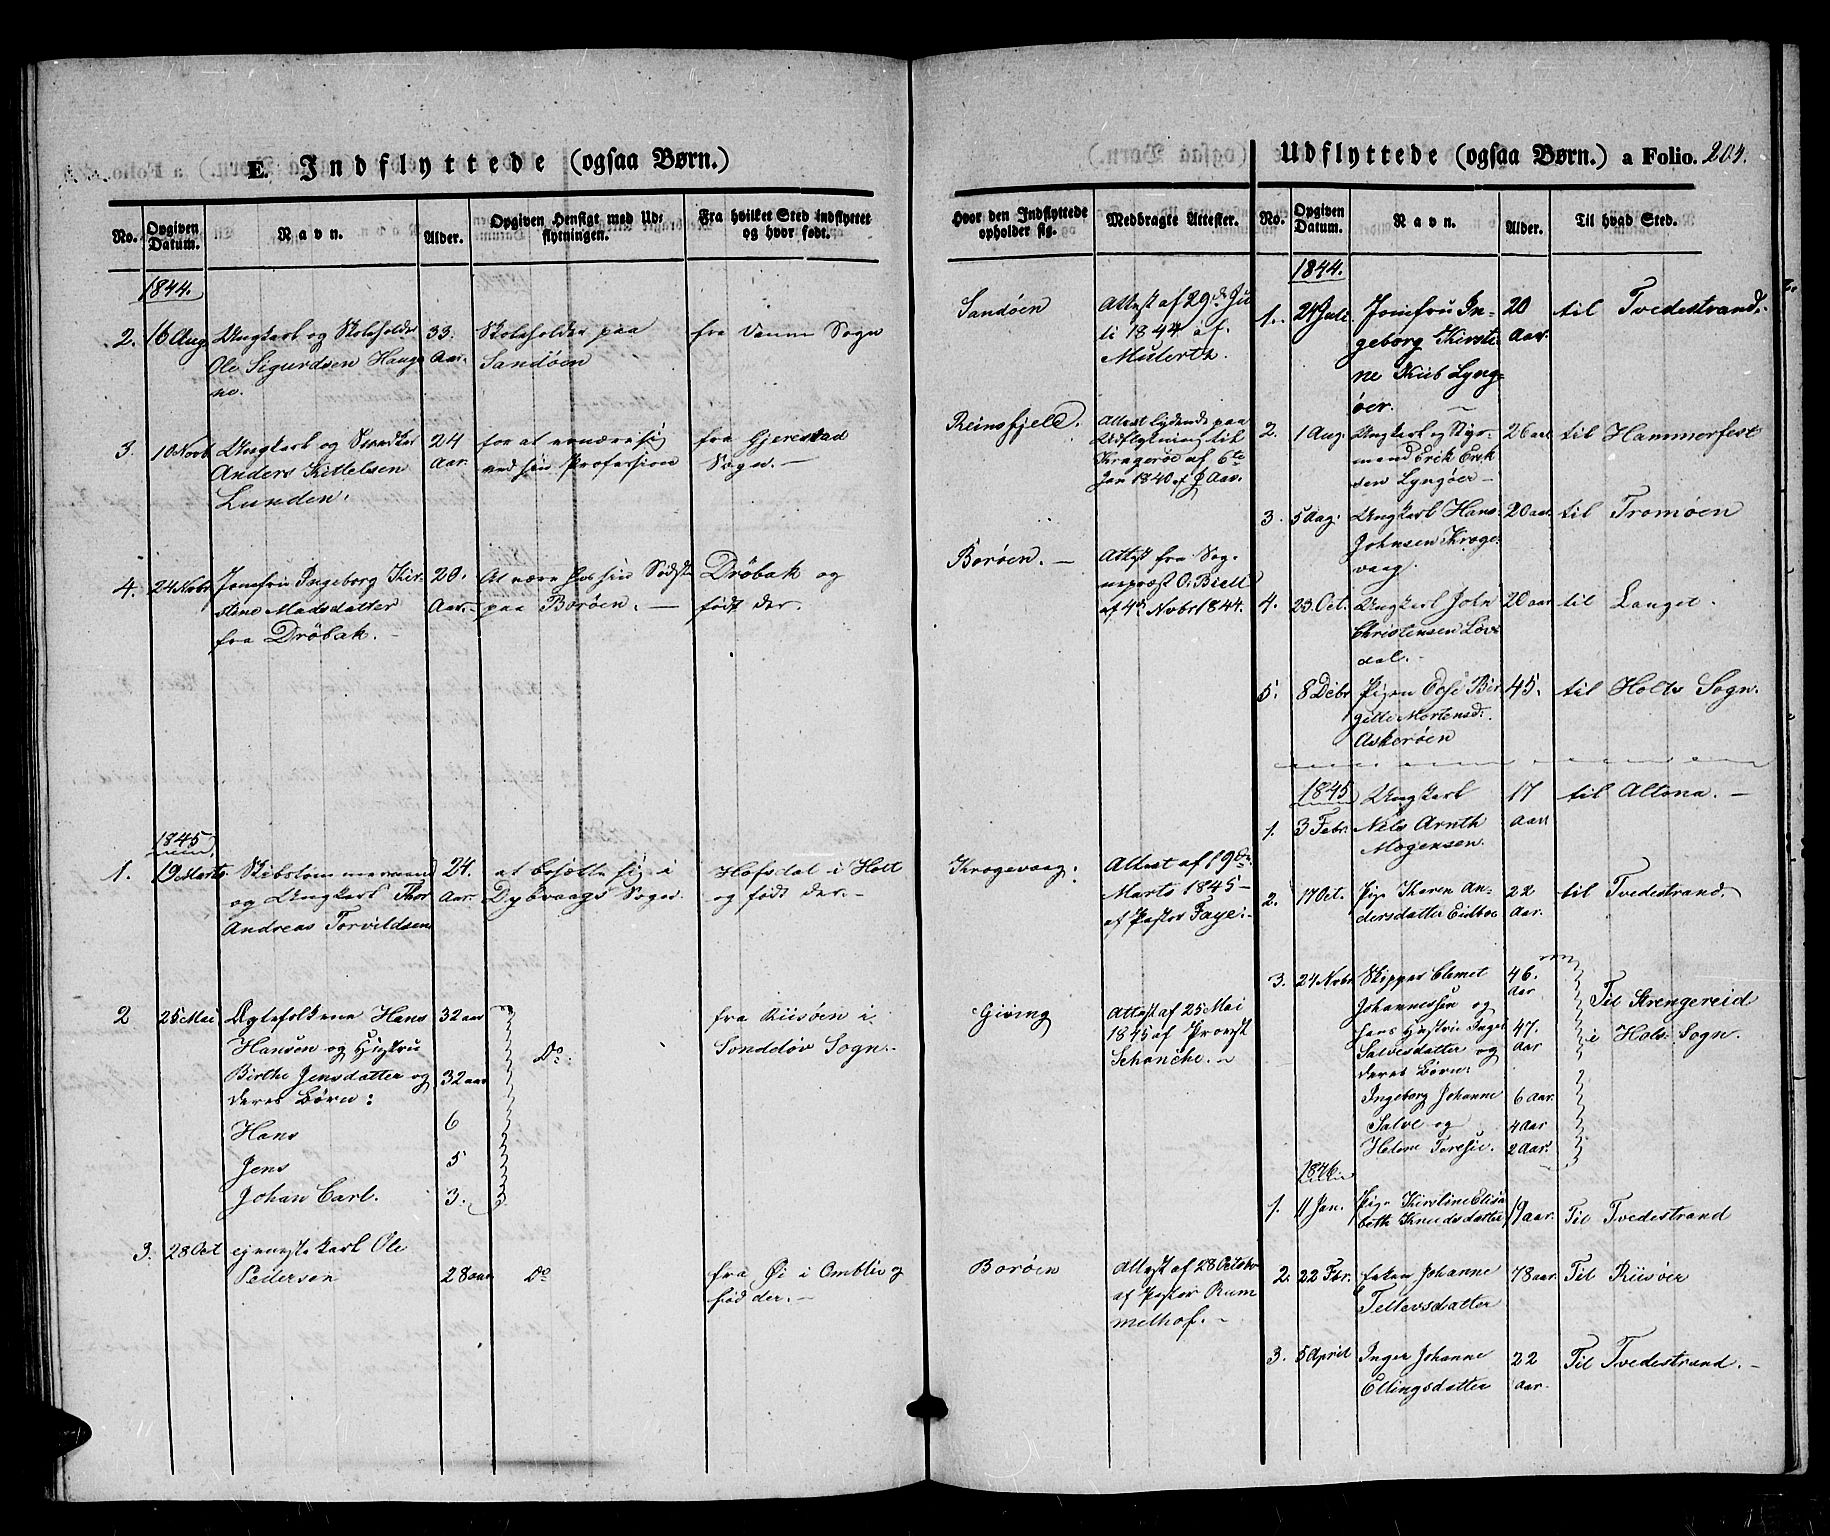 E. Indflyttede (ogsaa Børn.)
No.
Opgiven Datum.
Navn.
Alder.
Opgiven Hensigt med Udflytningen.
Fra hvilket Sted indflyttet og hvor født.
1844.
2. 16 Aug. Ungkarl og Skoleholder 33. Skoleholder paa fra Vanse Sogn
Ole Sigurdsen Hauge Aar. Sandøen
ne.
3. 10 Novb. Ungkarl og 24 for at ernære sig fra Gjerestad
Anders Kittelsen Aar. ved sin Profession Sogn. —
Lunden.
4. 24 Novbr Jomfru Ingeborg Kir- 20. At være hos sin Drøbak og
stine Madsdatter Aar. paa Borøen. — født der.
fra Drøbak. —
1845
1. 19 Marts Skibstømmermand 24. at bosætte sig i Hofsdal i Holt
og Ungkarl Thor Aar. Dybvaags Sogn. og født der. —
Andreas Torvildsen
2 25 Mai Ægtefolkene Hans 32 aar fra Riisøen i
Hansen og Hustru Do. Sønddøv Sogn. —
Birthe Jensdatter og 32 aar
deres Børn:
Hans 6
Jens 5
Johan Carl. 3.
3. 28 Oct Ole
Pedersen 28 aar Do fra Øi i Omblie og
fød der. —
Hvor den Indflyttede opholder sig.
Medbragte Attester.
Sandøen Attest af 29de Ju
li 1844 af
Mulertz.
Reinsfjeld. Attest lydende paa
Udflytning til
Kragerøe af 6te
Jan 1840 af P Aar.
Borøen. — Attest fra Sog-
nepræst O. Biell
af 4de Novbr 1844.
Krogevaag. Attest af 19de
Marts 1845 —
af Pastor Faye. —
Giving Attest af 25 Mai
1845 af Provst
Schanche. —
Borøen Attest af 28 October
af Pastor Rum
melhof. —
Udflyttede (ogsaa Børn.) a Folio. 204.
No.
Opgiven Datum.
Navn.
Alder.
Til hvad Sted.
1844.
1. 24 Juli. Jomfru In- 20 til Tvedestrand.
geborg Kirsti- Aar.
ne Lyng-
øer.
2. 1 Aug. Ungkarl og Styr- 26 aar til Hammerfest
mand Erik Erik
sen Lyngøer —
3. 5 Aug. Ungkarl Hans 20 aar til Tromøen
Johnsen Kroge-
vaag.
4. 23 Oct. Ungkarl John 20 aar til Langet.
Christensen Løv-
dal. —
5. 8 Debr Pigen Bir- 45. til Holts Sogn.
gitte Mortensd.
Askerøen
1845 Ungkarl 17 til Altona. —
1. 3 Febr. Niels Arnth Aar
Mogensen.
2. 17 Oct. Pige Karen An- 22 til Tvedestrand.
dersdatter Eidboe Aar.
3. 24 Nvbr Skipper Clemet 46.
Johannessen og Aar Til Strengereid
hans Hustru Inger 47. i Holts Sogn.
Salvesdatter og Aar
deres Børn:
Ingeborg Johanne 6 Aar.
Salve og 4 Aar
Helene Teresie. 2 Aar.
1846.
1. 4 Jan. Pige Elisa
beth Knudsdatter 19 aar. Til Tvedestrand
2. 22 Fbr. Enken Johanne 78 aar. Til Riisøer
Tellevsdatter
3. 5 April Inger Johanne 22 Til Tvedestrand. —
Ellingsdatter Aar.